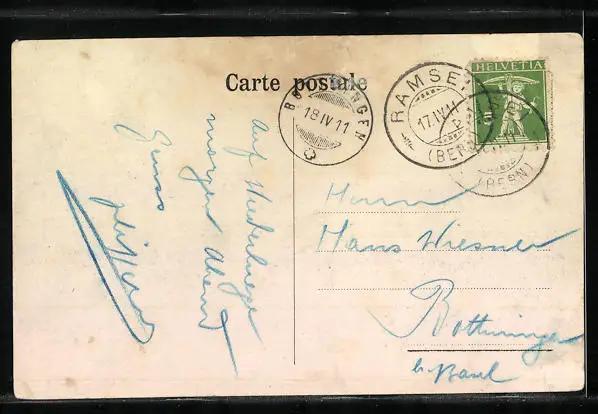 Carte postale
HELVETIA
RAMSEI
17.IV.11
(BERN)
BOTTMINGEN
18 IV 11
(BERN)
Auf Wiedersehen
morgen Abend
Gruss
Herrn
Hans Wiesner
Bottmingen
b. Basel